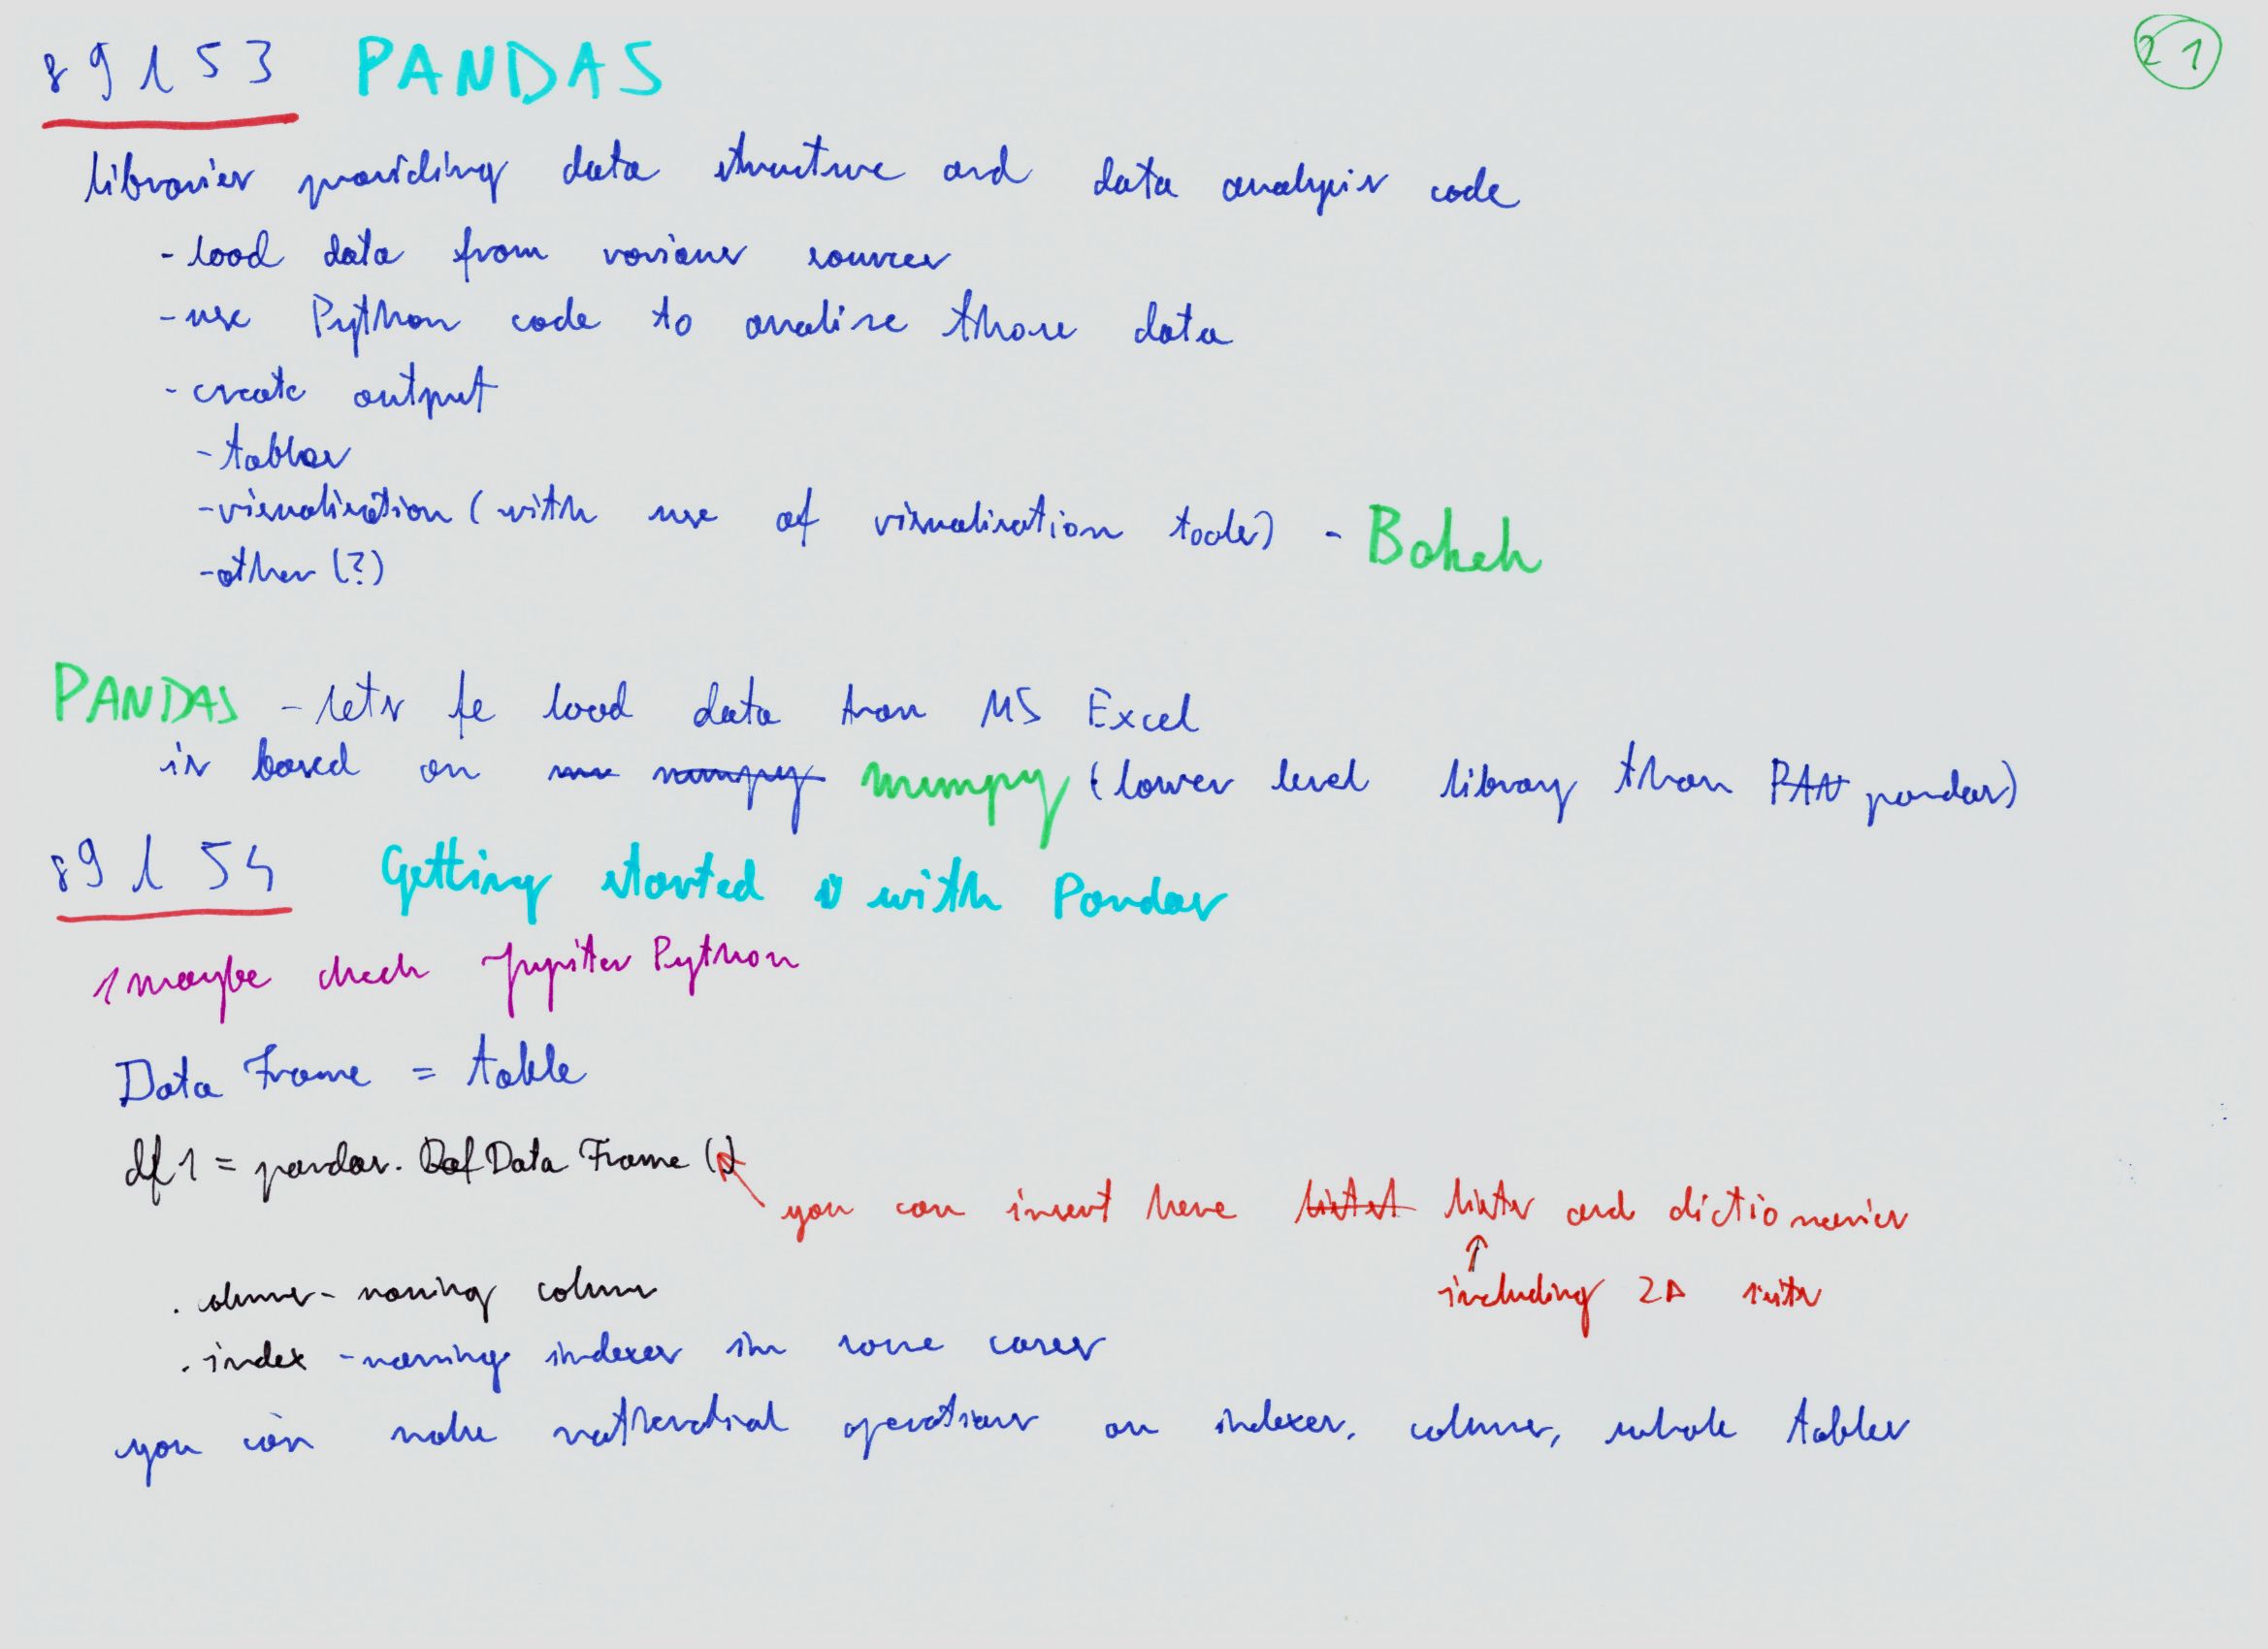 89153 PANDAS
21
libraries providing data structure and data analysis code
- load data from various sources
- use Python code to analise those data
- create output
- tables
- visualisation (with use of visualisation tools) - Bokeh
- other (?)
PANDAS - lets fe load data than MS Excel
is based on numpy numpy (lower level library than PAN pandas)
89154 Getting started with Pandas
1 maybe check Jupiter Python
Data Frame = table
df1 = pandas. Daf Data Frame ()
you can insert here lists and dictionaries
including 2D lists
. colums - naming colums
. index - naming indexes in some cases
you can make mathematical operations on indexes, colums, whole tables